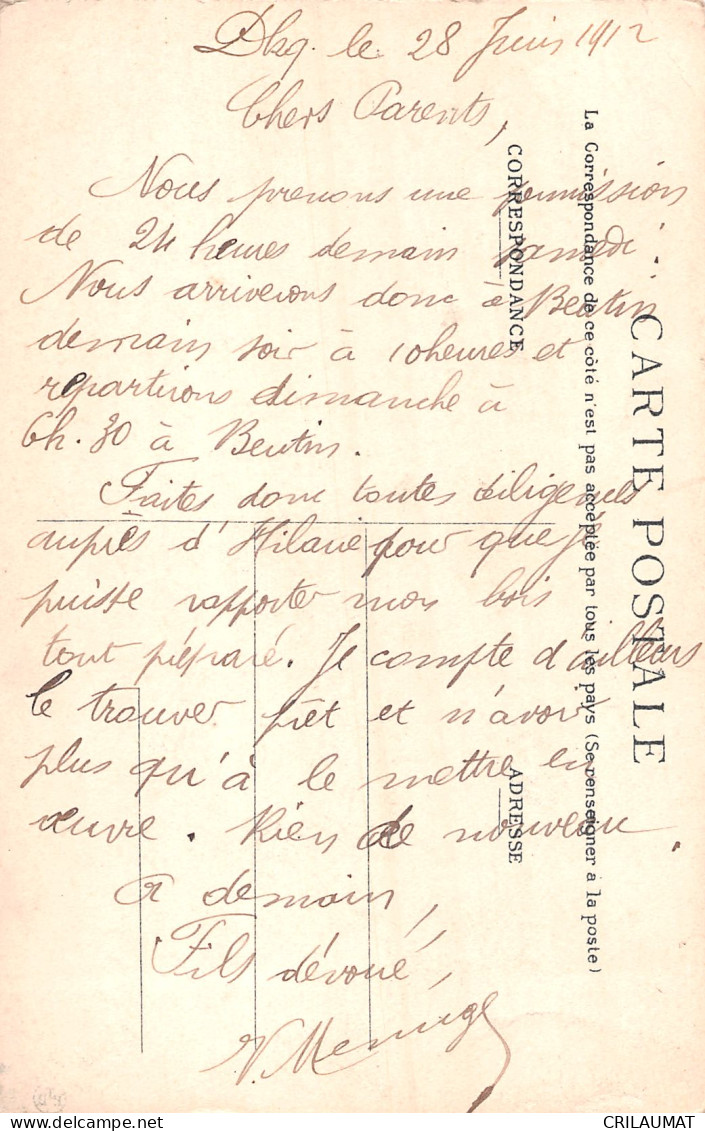 Dkq. le 28 Juin 1912
Chers Parents,
Nous prenons une permission
de 24 heures demain samedi.
Nous arriverons donc à Beutin
demain soir à 10 heures et
repartirons dimanche à
6h.30 à Beutin.
Faites donc toutes diligences
auprès d'Hilaire pour que je
puisse rapporter mon bois
tout préparé. Je compte d'ailleurs
le trouver prêt et n'avoir
plus qu'à le mettre en
œuvre. Rien de nouveau
A demain,
Fils dévoué,
CARTE POSTALE
La Correspondance de ce côté n'est pas acceptée par tous les pays (Se renseigner à la poste)
CORRESPONDANCE
ADRESSE
CRILAUMAT